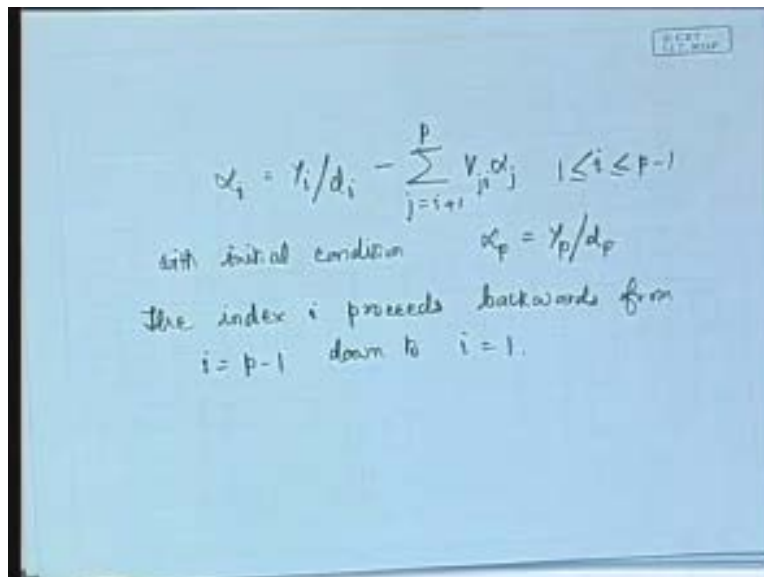 α_i = Y_i/d_i - \sum_{j=i+1}^{p} V_{ji} α_j 1 ≤ i ≤ p-1
with initial condition α_p = Y_p/d_p
The index i proceeds backwards from
i = p-1 down to i = 1.